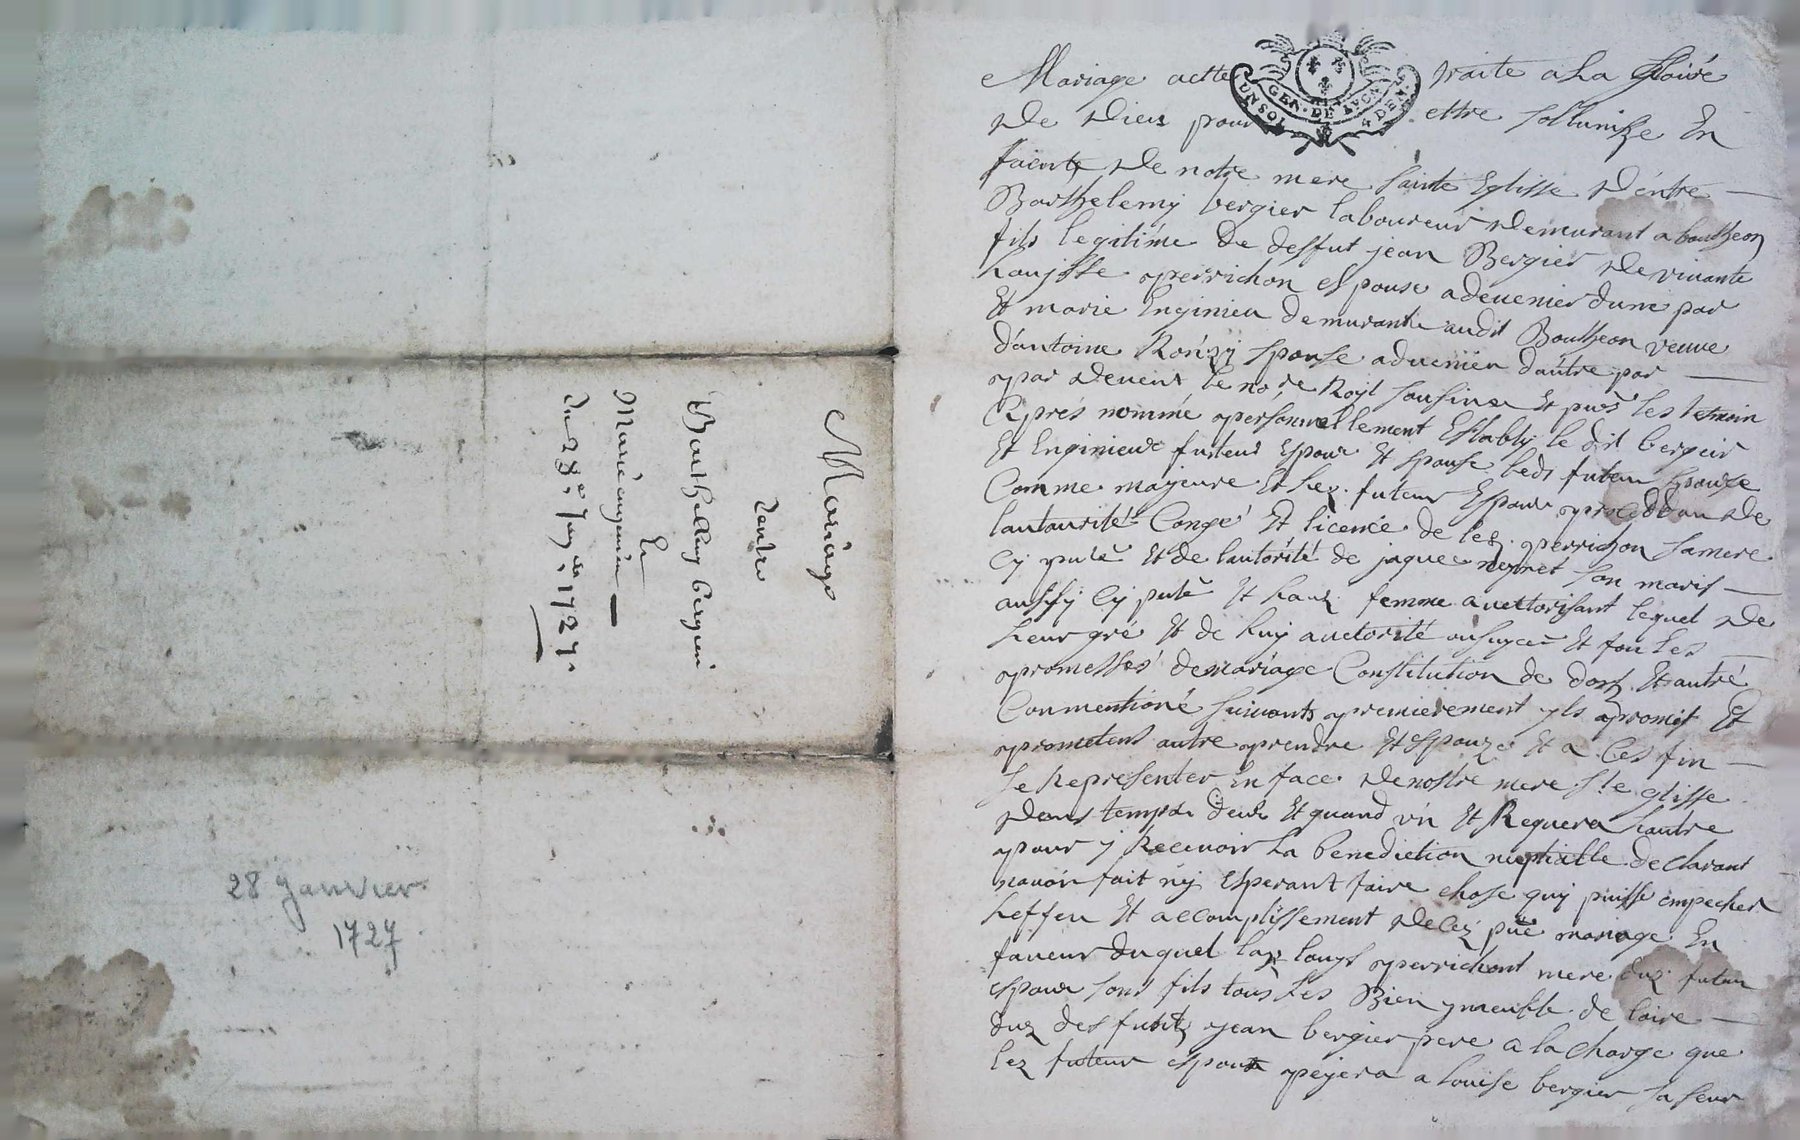 Mariage
dentre
Barthellemy bergier
Et
Marie enginieu
du 28e. Janer. 1727.
28 Janvier
1727
Mariage acte traité a La gloire
GEN. DE LYON
UN SOL 4 DEN.
De Dieu pour ettre sollanize En
facente De notre mere sainte Eglisse Dentre
Barthelemy bergier laboureur Demurant a boutheon
fils legitime de deffut jean Bergier De vivante
Louysse perrichon espouse advenier dune par
Et marie Enginieu demurante audit Boutheon veuve
dantoine Ronzy sponse advenier dautre par
par Devent le nore Royl sousine Et puis les temoin
Cy pres nommé personnellement Estably le dit bergier
Et Enginieux futeur Espoux Et sponse led futeur sponse
Comme majeure Et lez. futeur Espoux proceddan De
lautaurité Congé Et licence de lez. perrichon sa mere
Cy pnte Et de lautorité de jaques son maris
aussy Cy pnte Et femme auctorisant lequel De
leur gré Et de luy auctorité Et fon Les
promesses de mariage Constitution de dost Et autré
Conmentioné suivants premierement yls promis Et
prometent autre prendre Et Espouze Et a Ces fin
se Representer En face De nostre mere ste glisse
Dans temps deub Et quand un Et Requera Lautre
pour y Recevoir La benediction nuptialle declarant
navoir fait ny Esperant faire chose quy puisse empecher
Leffeu Et accomplissement De Cez pnt mariage En
faveur duquel laz. Louys perrichont mere duz. futeur
espoux son fils tous Les Bien ymeuble de loire
duz deffuntz jean bergier pere a la charge que
lez futeur espoux peyera a Louise bergier sa seur